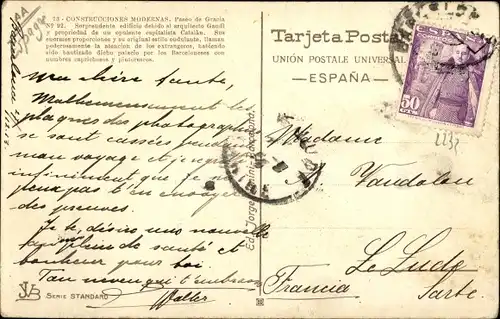 13 - CONSTRUCCIONES MODERNAS. Paseo de Gracia
Nº 92. Sorprendente edificio debido al arquitecto Gaudí
y propiedad de un opulento capitalista Catalán. Sus
enormes proporciones y su original estilo ondulante, llaman
poderosamente la atención de los extranjeros, habiendo
sido bautizado dicho palacio por los Barceloneses con
nombres caprichosos y pintorescos.
Barcelona
Ma chère tante,
Malheureusement les
plaques des photographies
se sont cassées
mon voyage et je
infiniment que je
peux pas t'en envoyer
des preuves.
Je te désire une nouvelle
année de santé et
bonheur pour toi
Ton neveu qui t'embrasse
Walter
JVB
SERIE STANDARD
Ed. Jorge Venini Barcelona
Tarjeta Postal
UNIÓN POSTALE UNIVERSAL
ESPAÑA
ESPAÑA
50
CTS
2232
Madame
Vaudolon
Le Lude
Francia Sarthe